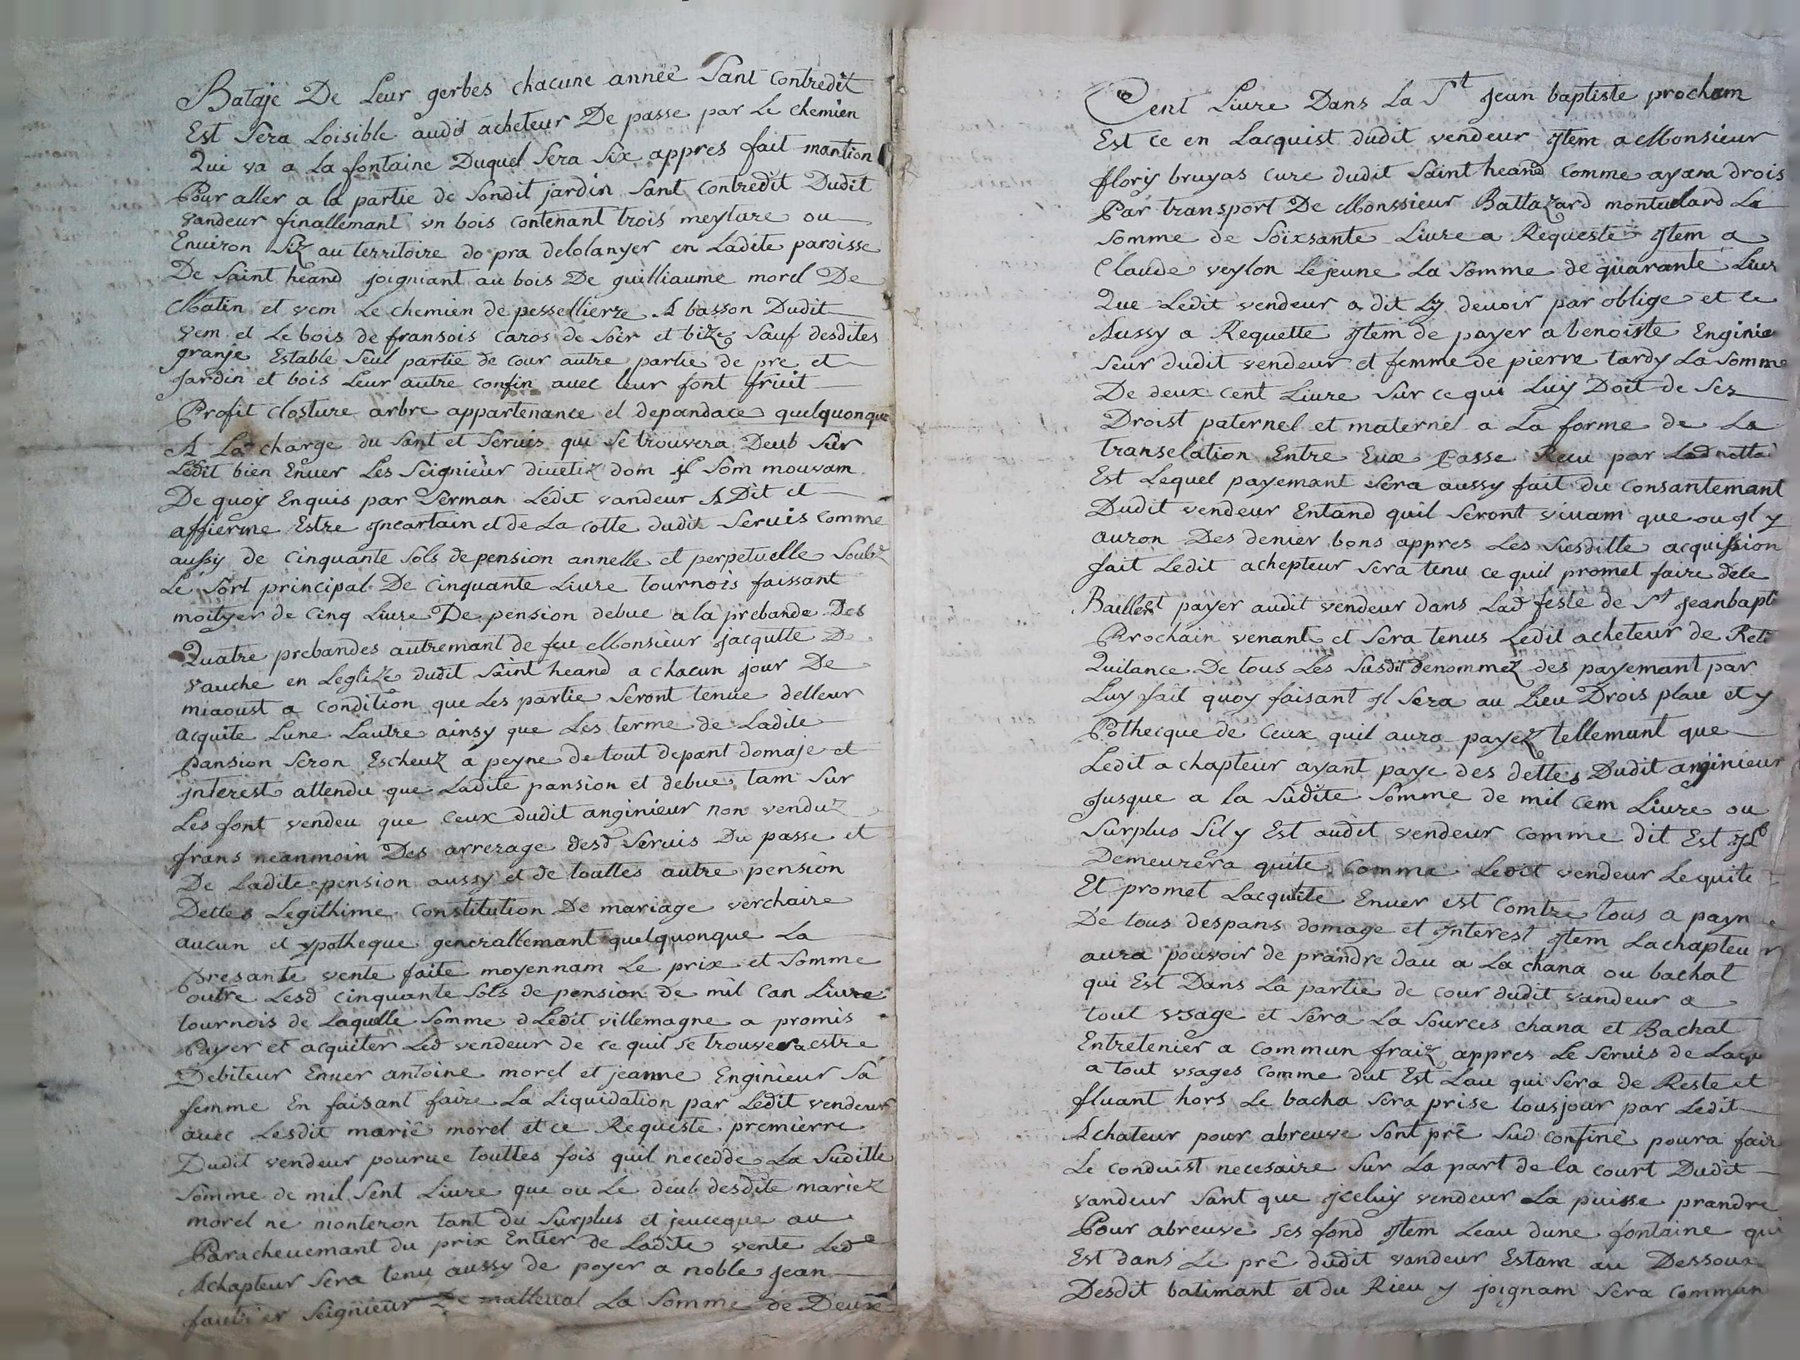 Bataje De Leur gerbes chacune anneê Sant Contredit
Est Sera Loisible audit acheteur De passe par Le Chemien
Qui va a La fontaine Duquel Sera Six appres fait mantion
Pour aller a la partie de Sondit jardin Sant Contredit Dudit
vandeur finallemant vn bois Contenant trois meyture ou
Enuiron Siz au territoire do pra delolanyer en Ladite paroisse
De Saint heand joigniant au bois De guilliaume morel De
Matin et vem Le chemien de pessellierre A basson Dudit
vem et Le bois de fransois Caros de Soir et bize Sauf desdites
granje Estable Seul partie de Cour autre partie de pre et
Jardin et bois Leur autre Confin avec leur font fruit
Profit Closture arbre appartenance et depandace quelquonque
A La charge du Sant et Seruis qui Se trouvera Deub Sur
Ledit bien Enuer Les Seignieur diuetiz dom jl Som mouvam
De quoy Enquis par Serman Ledit vandeur A Dit et
affierme Estre jncartain et de La Cotte dudit Seruis Comme
aussy de Cinquante Sols de pension annelle et perpetuelle Soubz
Le Sort principal De Cinquante Liure tournois faissant
moityer de Cinq Liure De pension debue a la prebande Des
Quatre prebandes autremant de feu Monsieur jacqutte De
vauche en Leglize dudit Saint heand a chacun jour De
miaoust a Condition que Les partie Seront tenue delleur
acquite Lune Lautre ainsy que Les terme de Ladite
pansion Seron Escheuz a peyne de tout depant domaje et
jnterest attendu que Ladite pansion et debue tam Sur
Les font vendeu que Ceux dudit anginieur non venduz
frans neanmoin Des arrerage desd Seruis Du passe et
De Ladite pension aussy et de touttes autre pension
Dettes Legithime Constitution De mariage verchaire
aucun et ypotheque generallemant quelquonque La
presante vente faite moyennam Le prix et Somme
outre Lesd Cinquante Sols de pension de mil Can Liure
tournois de Laquelle Somme Ledit villemagne a promis
Payer et acquiter Led vendeur de Ce quil Se trouvera estre
Debiteur Enuer antoine morel et jeanne Enginieur Sa
femme En faisant faire La Liquidation par Ledit vendeur
avec Lesdit mariê morel et ce Requeste premierre
Dudit vendeur pourue touttes fois quil necedde La Suditte
Somme de mil Sent Liure que ou Le deub desdite mariez
morel ne monteron tant du Surplus et jeuceque au
Paracheuemant du prix Entier de Ladite vente Led
Achapteur Sera tenu aussy de payer a noble jean
fautrier Seignieur De malleual La Somme de Deux
Cent Liure Dans La St Jean baptiste procham
Est Ce en Lacquist dudit vendeur jtem a Monsieur
flory bruyas Cure dudit Saint heand Comme ayam drois
Par transport De Monssieur Baltazard monteulard La
Somme de Soixsante Liure a Requeste jtem a
Claude veylon Lejeune La Somme de quarante Liur
Que Ledit vendeur a dit Ly devoir par oblige et Ce
Aussy a Requette jtem de payer a benoiste Enginie
Seur dudit vendeur et femme de pierre tardy La Somme
De deux Cent Liure Sur Ce qui Luy Doit de Ses
Droist paternel et maternel a La forme de La
transelation Entre Eux Passe Reuu par Led notta
Est Lequel payemant Sera aussy fait du Consantemant
Dudit vendeur Entand quil Seront vivam que ou jl y
auron Des denier bons appres Les Susditte acquission
fait Ledit achepteur Sera tenu Ce quil promet faire dele
Baillest payer audit vendeur dans Lad feste de St jeanbapti
Prochain venant et Sera tenus Ledit acheteur de Reti
Quitance De tous Les Susdit denommez des payemant par
Luy fait quoy faisant jl Sera au Lieu Drois plau et y
Pothecque de Ceux quil aura payez tellemant que
Ledit achapteur ayant paye des dettes Dudit anginieur
Jusque a la Sudite Somme de mil Cem Liure ou
Surplus Sil y Est audit vendeur Comme dit Est jl
Demeurera quite Comme Ledit vendeur Lequite
Et promet Lacquite Enuer est Comtre tous a payn
De tous despans domage et jnterest jtem Lachapteur
aura pouvoir de prandre dau a La chana ou bachat
qui Est Dans La partie de Cour dudit vandeur a
tout vsage et Sera La Sources chana et Bachat
Entretenier a Commun fraiz appres Le Seruis de Laqu
a tout vsages Comme dut Est Lau qui Sera de Reste et
fluant hors Le bacha Sera prise tousjour par Ledit
Achateur pour abreuve Sont prê Sud Confinê poura fair
Le Conduist necesaire Sur La part de la Court Dudit
vandeur Sant que jceluy vendeur La puisse prandre
Pour abreuve Ses fond jtem Leau dune fontaine qui
Est dans Le prê dudit vandeur Estam au Dessous
Desdit batimant et du Rieu y joignam Sera Commun